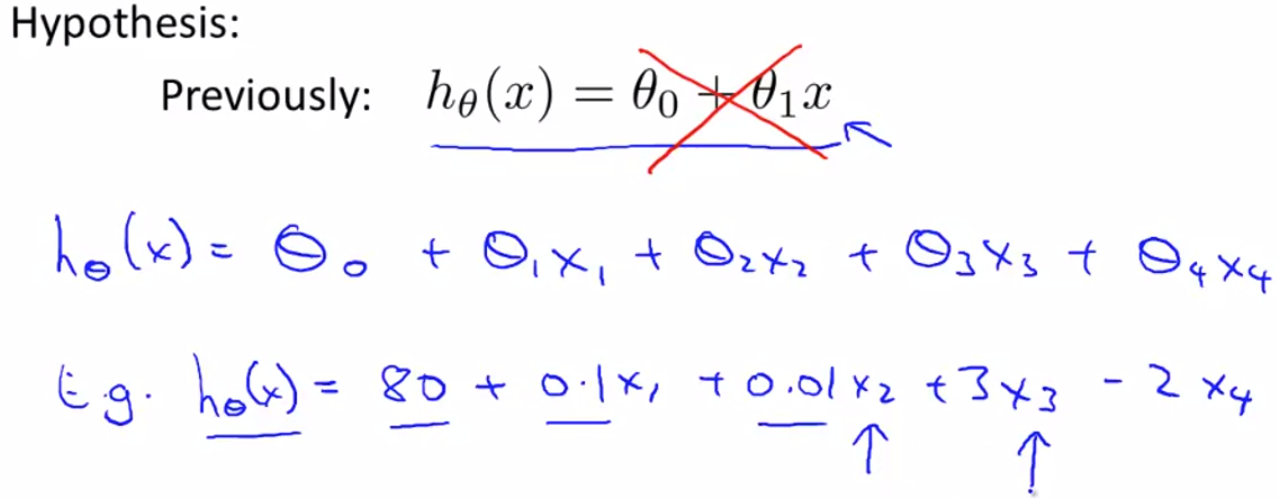 Hypothesis:
Previously: hθ(x) = θ0 + θ1x
hθ(x) = θ0 + θ1x1 + θ2x2 + θ3x3 + θ4x4
E.g. hθ(x) = 80 + 0.1x1 + 0.01x2 + 3x3 - 2x4